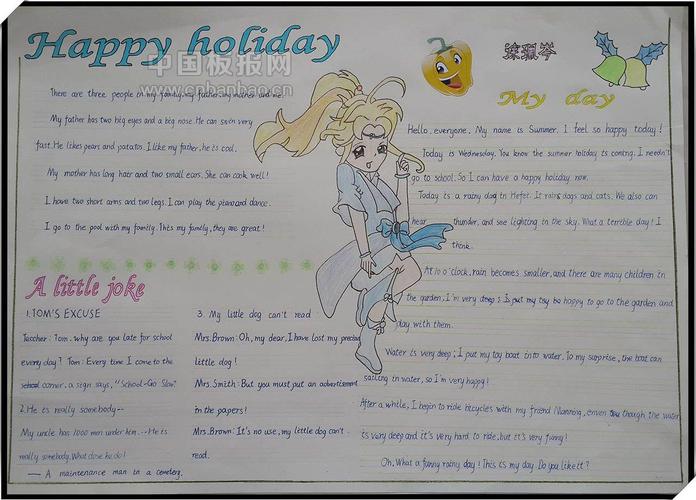 Happy holiday
中国板报网
www.cnbanbao.cn
There are three people in my family, my father, my mother and me.
My father has two big eyes and a big nose. He can swim very
fast. He likes pears and potatos. I like my father, he is cool.
My mother has long hair and two small ears. She can cook well!
I have two short arms and two legs. I can play the piano and dance.
I go to the pool with my family. This my family, they are great!
A little joke
1.TOM'S EXCUSE
Teacher: Tom. why are you late for school
every day? Tom: Every time I come to the
school corner, a sign says, "School-Go Slow"
2.He is really somebody--
My uncle has 1000 men under him.--He is
really somebody. What does he do!
— A maintenance man in a cemetery.
3. My little dog can't read
Mrs. Brown: Oh, my dear, I have lost my precious
little dog!
Mrs Smith: But you must put an advertisement
in the papers!
Mrs. Brown: It's no use, my little dog can't
read.
My day
Hello, everyone. My name is Summer. I feel so happy today!
Today is Wednesday. You know the summer holiday is coming. I needn't
go to school. So I can have a happy holiday now.
Today is a rainy day in Hefei. It rains dogs and cats. We also can
hear thunder, and see lighting in the sky. What a terrible day! I
think.
At 10 o'clock, rain becomes smaller, and there are many children in
the garden, I'm very happy to go to the garden and
play with them.
Water is very deep; I put my toy boat into water. To my surprise, the boat can
sailing in water, so I'm very happy!
After a while, I begin to ride bicycles with my friend though the water
is very deep and it's very hard to ride, but it's very funny!
Oh, What a funny rainy day! This is my day. Do you like it?